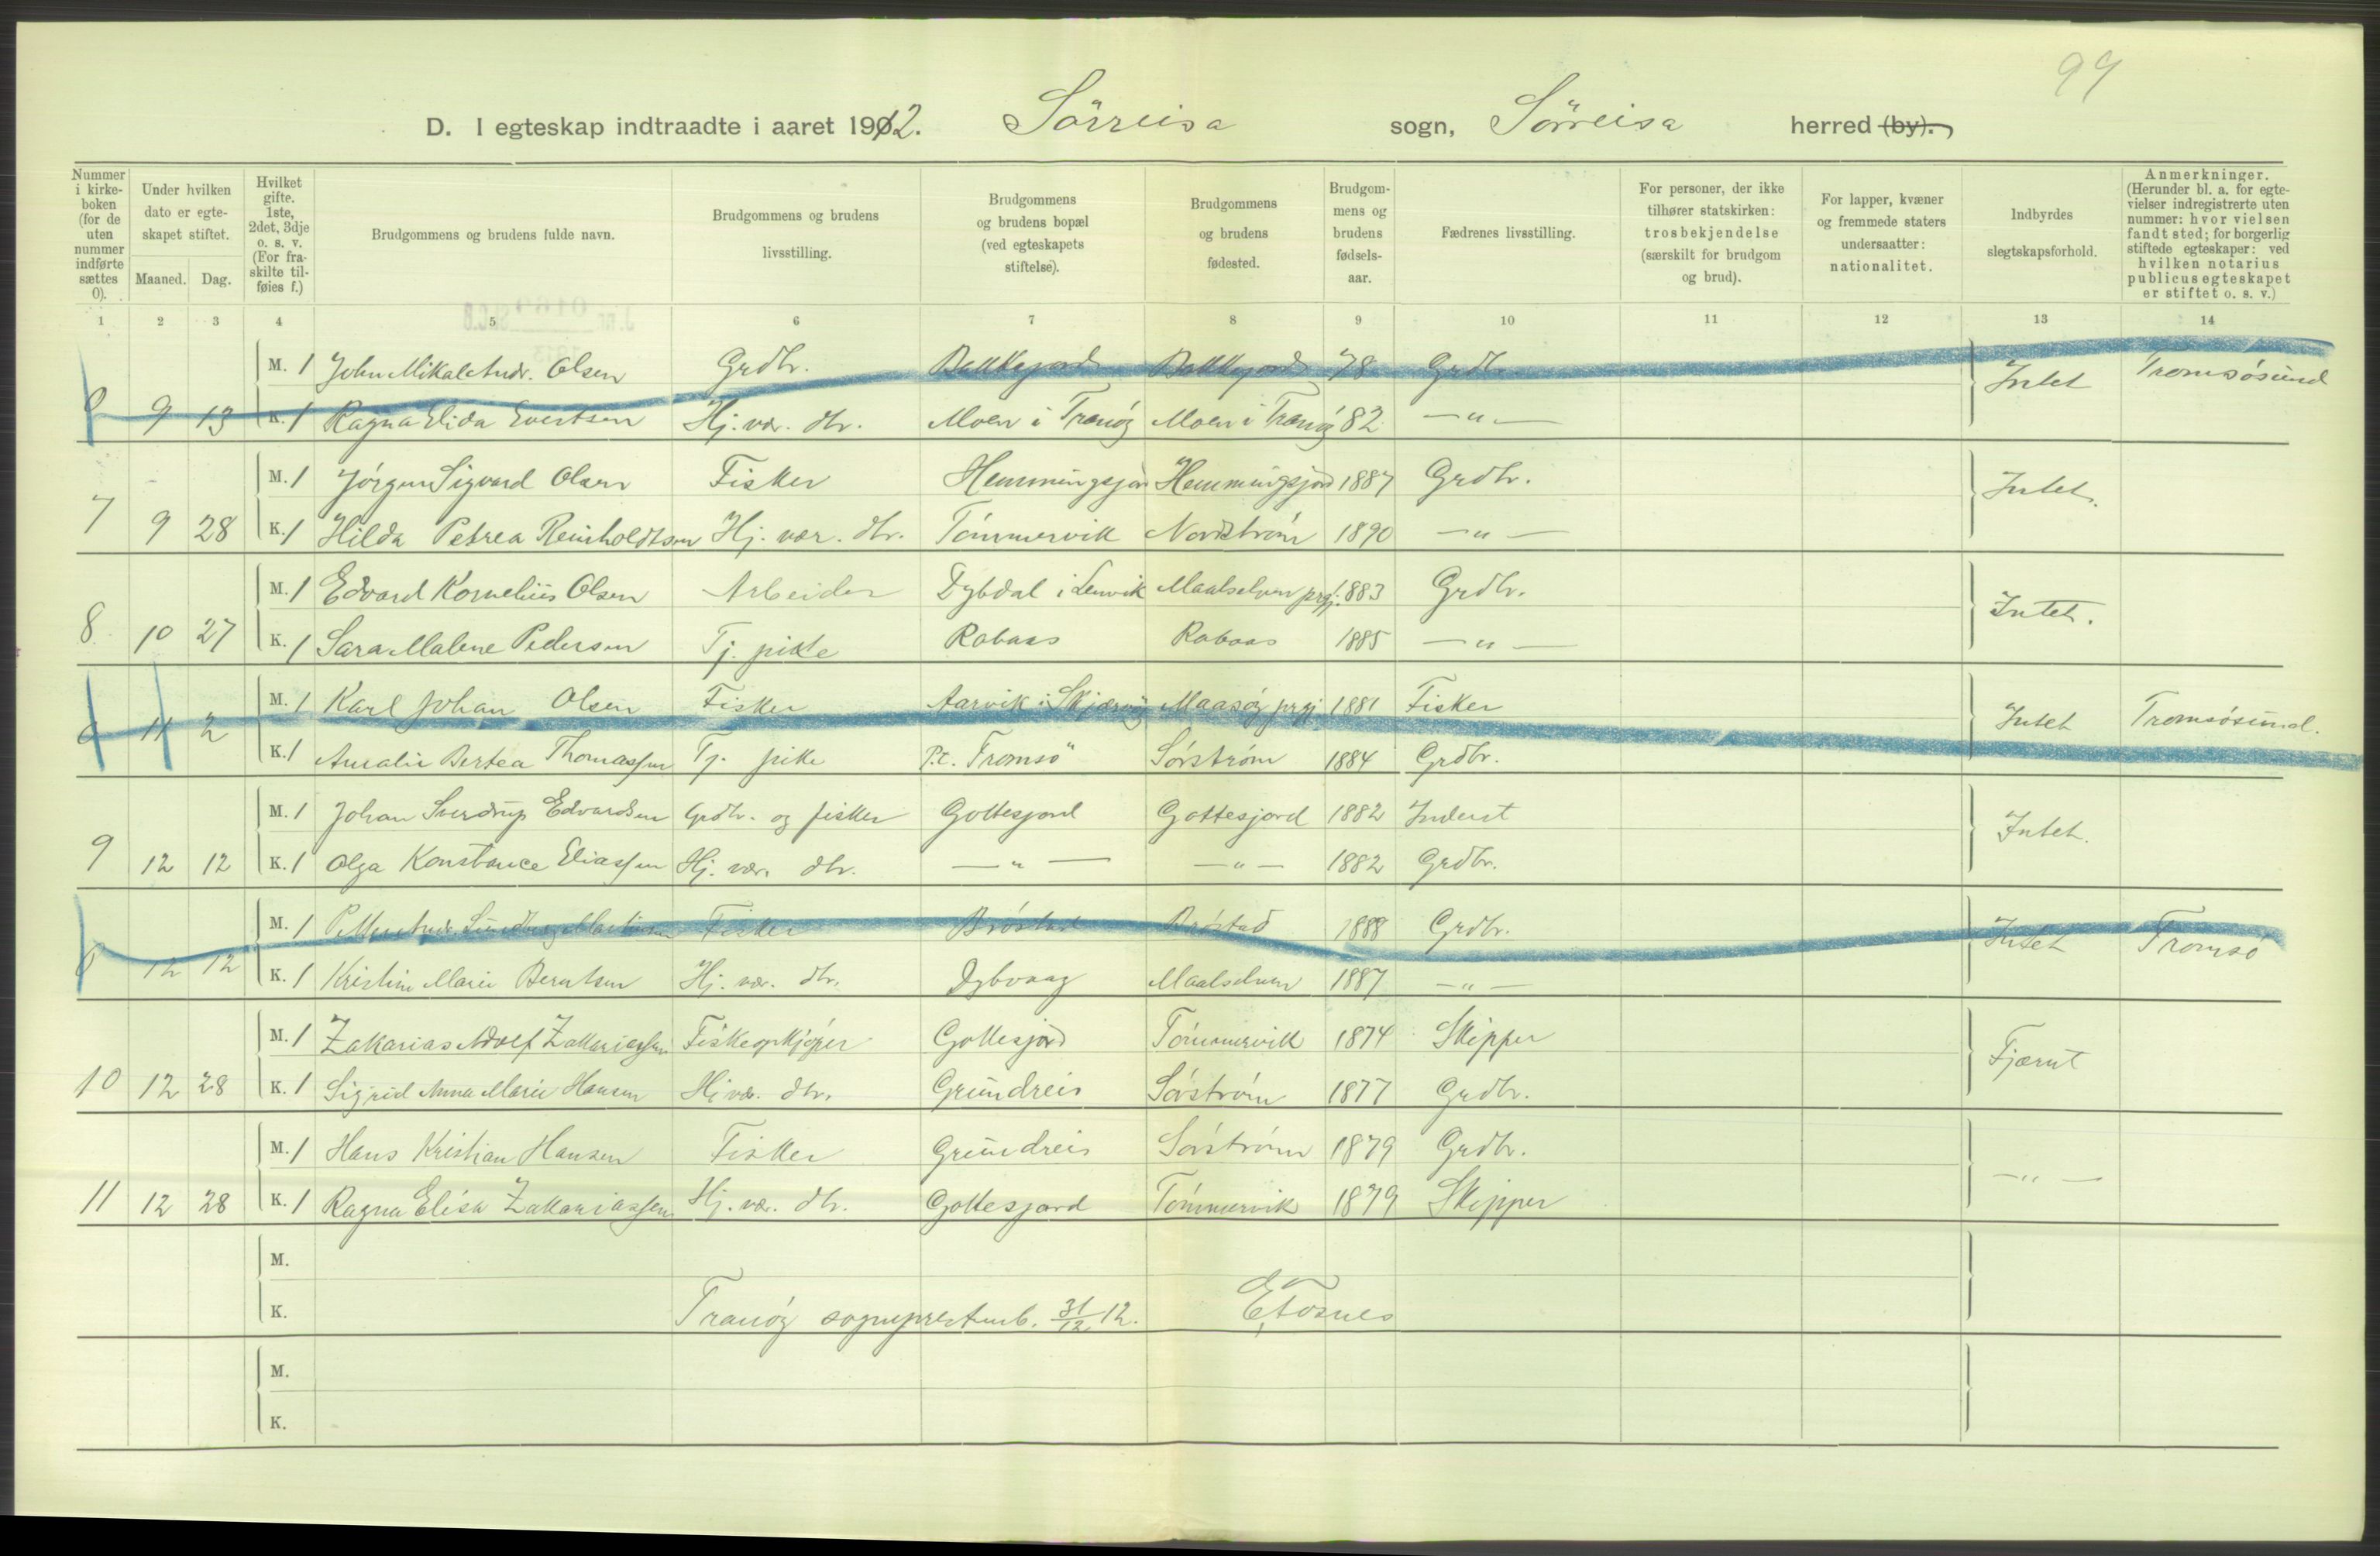 99
D. I egteskap indtraadte i aaret 1912. Sörreisa sogn, Sörreisa herred (by).
Nummer i kirkeboken (for de uten nummer indførte sættes 0).
Under hvilken dato er egteskapet stiftet.
Maaned. Dag.
Hvilket gifte. 1ste, 2det, 3dje o. s. v. (For fraskilte tilføies f.)
Brudgommens og brudens fulde navn.
Brudgommens og brudens livsstilling.
Brudgommens og brudens bopæl (ved egteskapets stiftelse).
Brudgommens og brudens fødested.
Brudgommens og brudens fødselsaar.
Fædrenes livsstilling.
For personer, der ikke tilhører statskirken: trosbekjendelse (særskilt for brudgom og brud).
For lapper, kvæner og fremmede staters undersaatter: nationalitet.
Indbyrdes slegtskapsforhold.
Anmerkninger. (Herunder bl. a. for egtevielser indregistrerte uten nummer: hvor vielsen fandt sted; for borgerlig stiftede egteskaper: ved hvilken notarius publicus egteskapet er stiftet o. s. v.)
1 2 3 4 5 6 7 8 9 10 11 12 13 14
M. 1 John Mikal Andr. Olsen Grdbr. Bakkejord Bakkejord 78 Grdbr. Intet Tromsøsund
0 9 13 K. 1 Ragna Elida Evertsen Hj. vær. dtr. Moen i Tranöy Moen i Tranöy 82 — " —
M. 1 Jörgen Sigvard Olsen Fisker Hemmingsjord Hemmingsjord 1887 Grdbr. Intet.
7 9 28 K. 1 Hilda Petrea Reinholdtsen Hj. vær. dtr. Tömmervik Nordström 1890 — " —
M. 1 Edvard Kornelius Olsen Arbeider Dybdal i Lenvik Maalselven prgj. 1883 Grdbr. Intet.
8. 10 27 K. 1 Sara Malene Pedersen Tj. pike Rabaas Rabaas 1885 — " —
M. 1 Karl Johan Olsen Fisker Aarvik i Skjærvöy Maasöy prgj. 1881 Fisker Intet Tromsøsund.
0 11 2 K. 1 Amalie Bertea Thomassen Tj. pike P.t. Tromsö Sörström 1884 Grdbr.
M. 1 Johan Sverdrup Edvardsen Grdbr. og fisker Gottesjord Gottesjord 1882 Inderst Intet.
9 12 12 K. 1 Olga Konstance Eliassen Hj. vær. dtr. — " — — " — 1882 Grdbr.
M. 1 Petter Andr. Sundberg Martinsen Fisker Bröstad Bröstad 1888 Grdbr. Intet Tromsö
0 12 12 K. 1 Kristine Marie Berntsen Hj. vær. dtr. Dybvaag Maalselven 1887 — " —
M. 1 Zakarias Adolf Zakariassen Fiskeopkjöper Gottesjord Tömmervik 1874 Skipper Fjærnt
10 12 28 K. 1 Sigrid Anna Marie Hansen Hj. vær. dtr. Grundreis Sörström 1877 Grdbr.
M. 1 Hans Kristian Hansen Fisker Grundreis Sörström 1879 Grdbr. — " —
11 12 28 K. 1 Ragna Elisa Zakariassen Hj. vær. dtr. Gottesjord Tömmervik 1879 Skipper
M.
K. Tranöy sogneprestemb. 31/12 12. E Fosnes
M.
K.